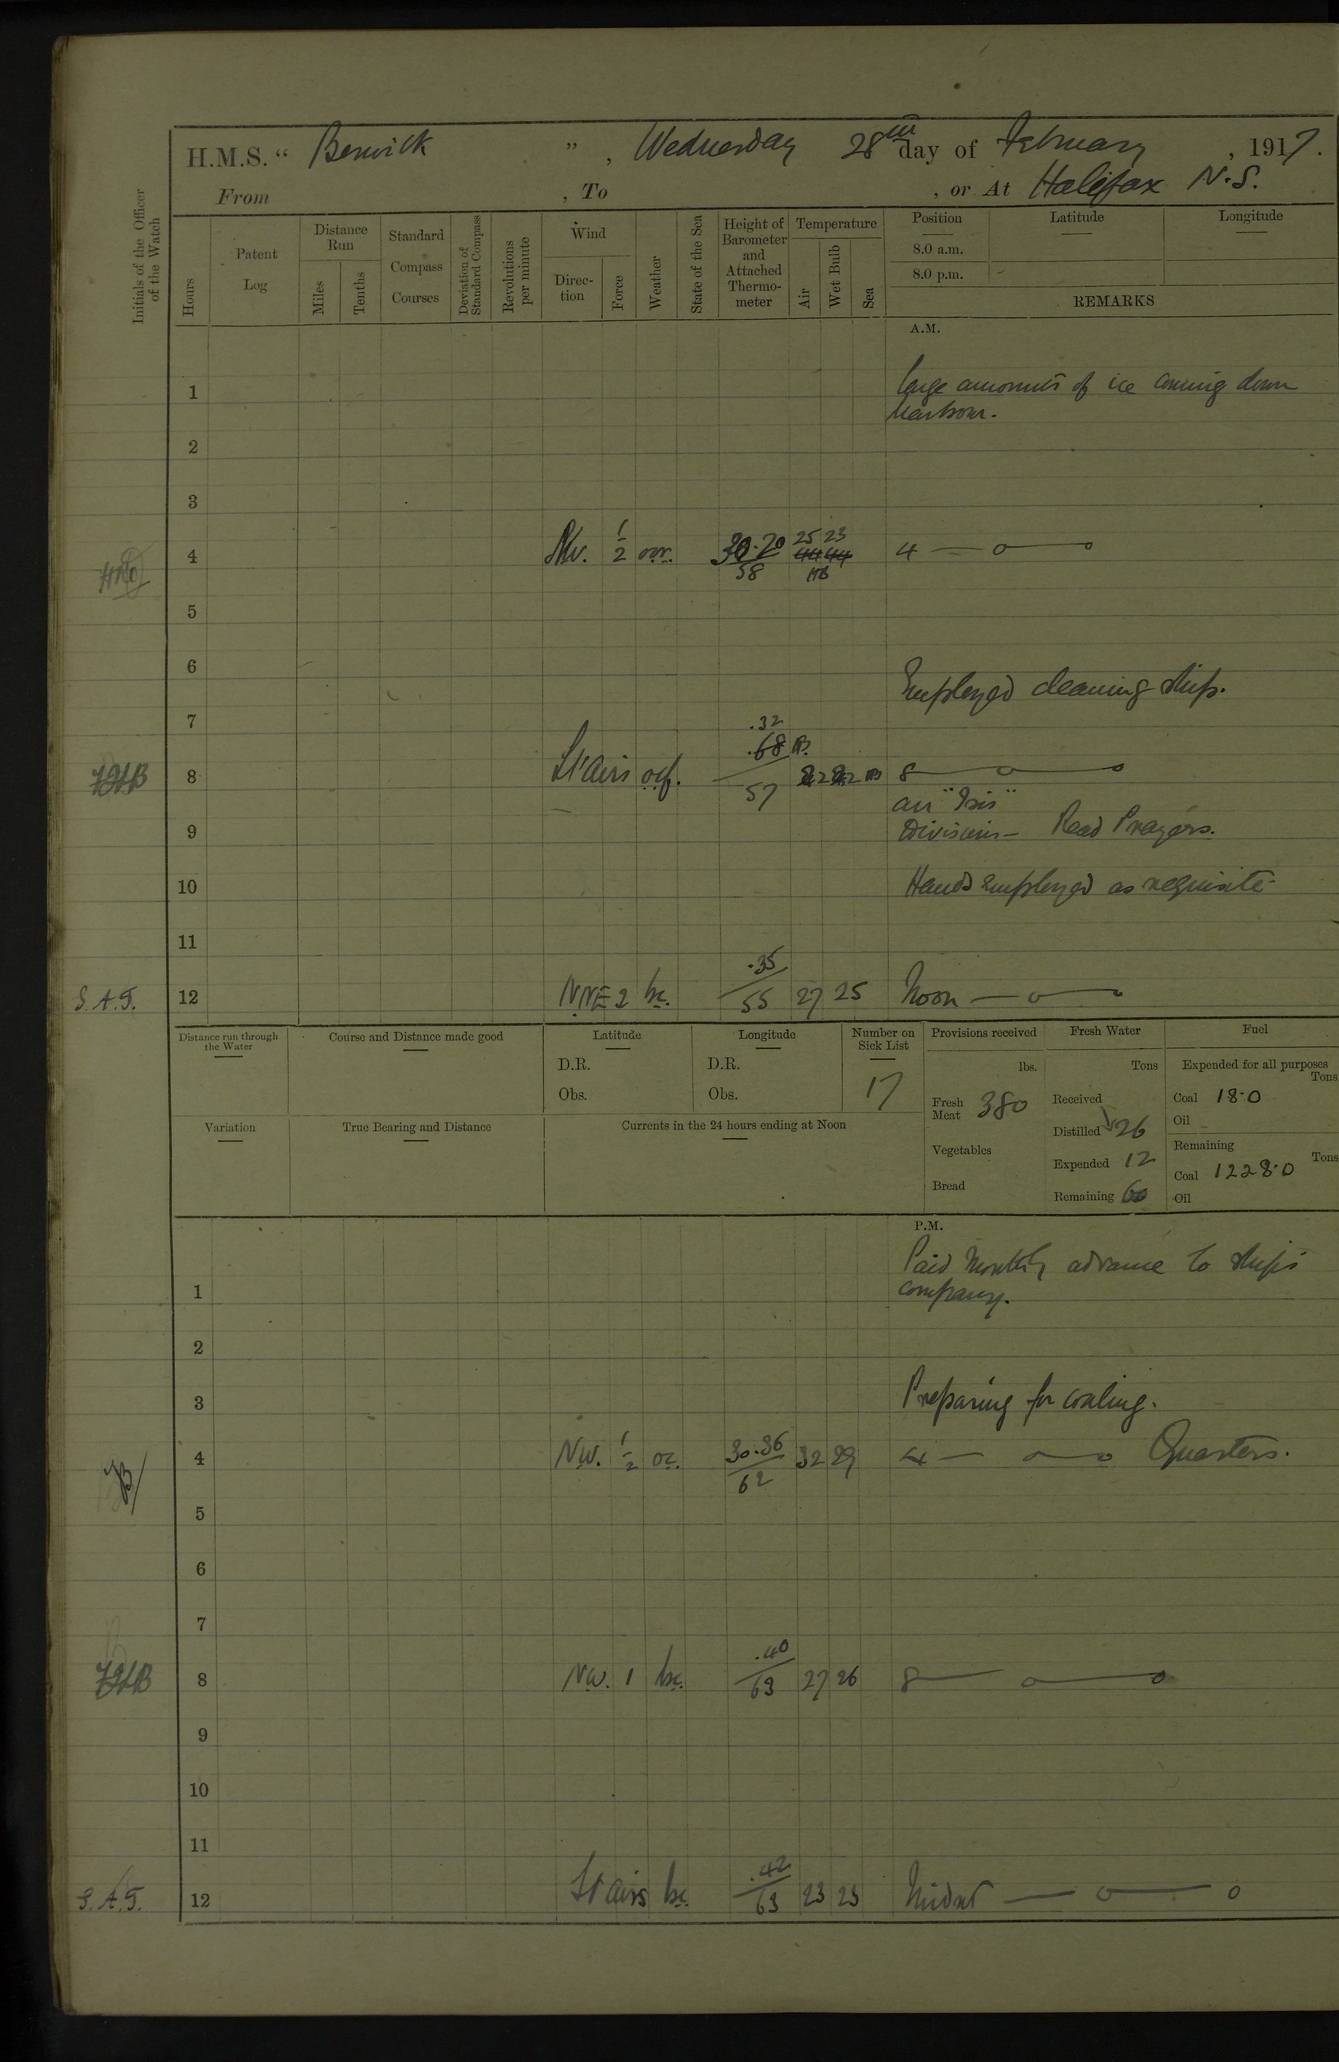 H.M.S. “ Berwick ” , Wednesday 28th day of February , 1917.
From , To , or At Halifax N.S.
Initials of the Officer of the Watch
Hours
Patent Log
Distance Run
Miles
Tenths
Standard Compass Courses
Deviation of Standard Compass
Revolutions per minute
Wind
Direction
Force
Weather
State of the Sea
Height of Barometer and Attached Thermometer
Temperature
Air
Wet Bulb
Sea
Position Latitude Longitude
8.0 a.m.
8.0 p.m.
REMARKS
A.M.
1 large amounts of ice coming down
harbour.
2
3
4 NW. 1/2 30.20 25 23 4
58
5
6
Employed cleaning ship.
7 .32
.68
8 Lt airs 8
57
arr "Isis"
9 Divisions – Read Prayers.
10 Hands employed as requisite
11
.35
S.A.T. 12 NNE 2 bc. 55 27 25 Noon
Distance run through the Water
Course and Distance made good
Latitude
D.R.
Obs.
Longitude
D.R.
Obs.
Number on Sick List
17
Variation
True Bearing and Distance
Currents in the 24 hours ending at Noon
Provisions received
lbs.
Fresh Meat 380
Vegetables
Bread
Fresh Water
Tons
Received
Distilled 26
Expended 12
Remaining 60
Fuel
Expended for all purposes
Tons
Coal 18.0
Oil
Remaining
Tons
Coal 1228.0
Oil
P.M.
Paid Monthly advance to ship's
1 company.
2
3 Preparing for coaling.
4 NW. 1/2 oc. 30.36 32 29 4 Quarters.
62
5
6
7
.40
8 NW. 1 bc. 63 27 26 8
9
10
11
.42
S.A.T. 12 Lt airs bc. 63 23 23 Midnt